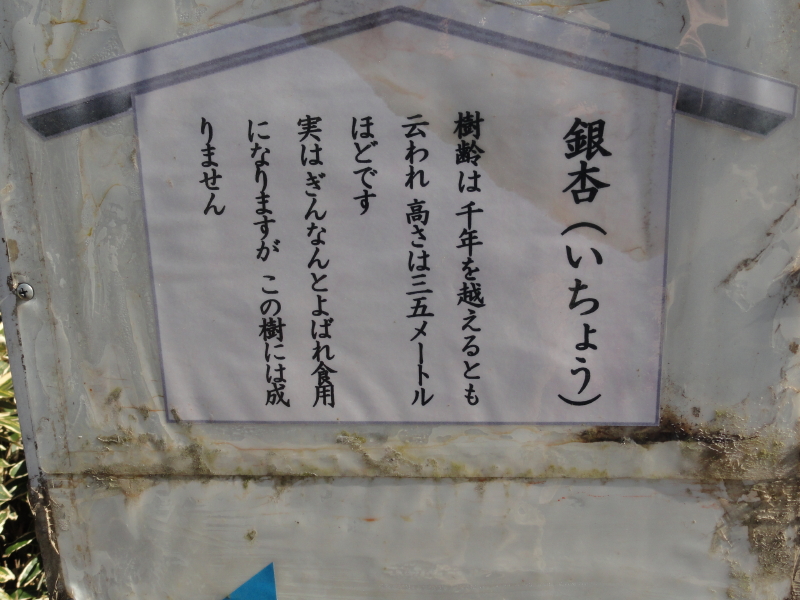 銀杏（いちょう）
樹齢は 千年を越えるとも
云われ 高さは三五メートル
ほどです
実は ぎんなんとよばれ食用
になりますが この樹には成
りません